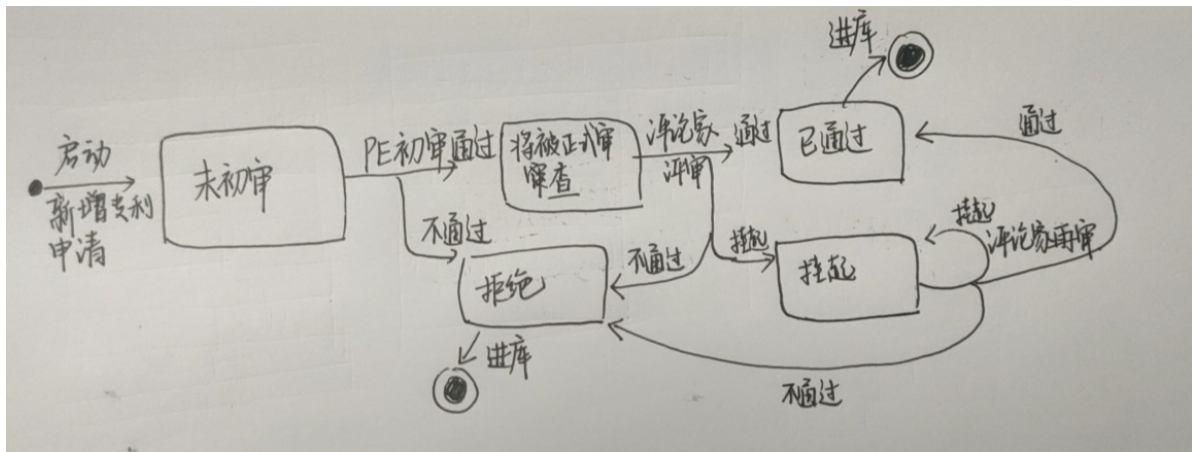 进库
启动
新增专利
申请
未初审
PE初审通过
将被正式审
审查
评论家
评审
通过
已通过
通过
不通过
拒绝
不通过
挂起
挂起
挂起
评论家再审
进库
不通过